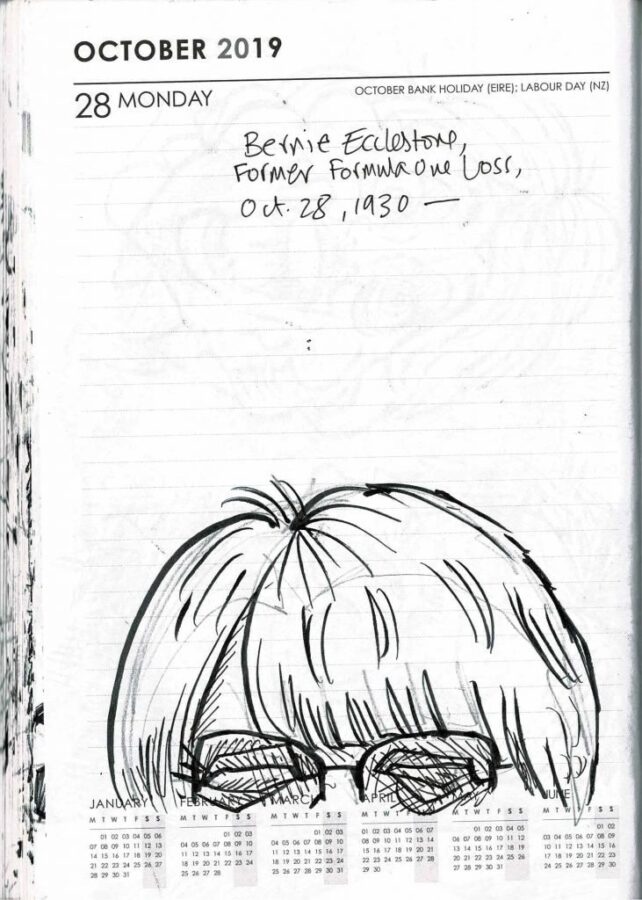 OCTOBER 2019
28 MONDAY
OCTOBER BANK HOLIDAY (EIRE); LABOUR DAY (NZ)
Bernie Ecclestone,
Former Formula One boss,
Oct. 28, 1930 —
JANUARY
M T W T F S S
01 02 03 04 05 06
07 08 09 10 11 12 13
14 15 16 17 18 19 20
21 22 23 24 25 26 27
28 29 30 31
FEBRUARY
M T W T F S S
01 02 03
04 05 06 07 08 09 10
11 12 13 14 15 16 17
18 19 20 21 22 23 24
25 26 27 28
MARCH
M T W T F S S
01 02 03
04 05 06 07 08 09 10
11 12 13 14 15 16 17
18 19 20 21 22 23 24
25 26 27 28 29 30 31
APRIL
M T W T F S S
01 02 03 04 05 06 07
08 09 10 11 12 13 14
15 16 17 18 19 20 21
22 23 24 25 26 27 28
29 30
MAY
M T W T F S S
01 02 03 04 05
06 07 08 09 10 11 12
13 14 15 16 17 18 19
20 21 22 23 24 25 26
27 28 29 30 31
JUNE
M T W T F S S
01 02
03 04 05 06 07 08 09
10 11 12 13 14 15 16
17 18 19 20 21 22 23
24 25 26 27 28 29 30